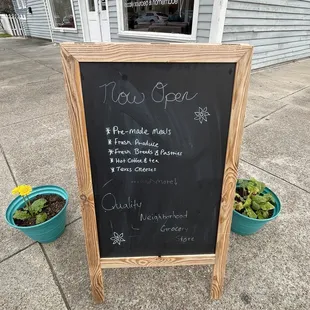 OPEN
Now Open
* Pre-made meals
* Fresh Produce
* Fresh Breads & Pastries
* Hot Coffee & tea
* Texas Cheeses
Quality
Neighborhood
Grocery
Store